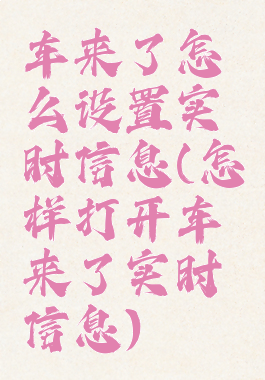 车来了怎
么设置实
时信息(怎
样打开车
来了实时
信息)